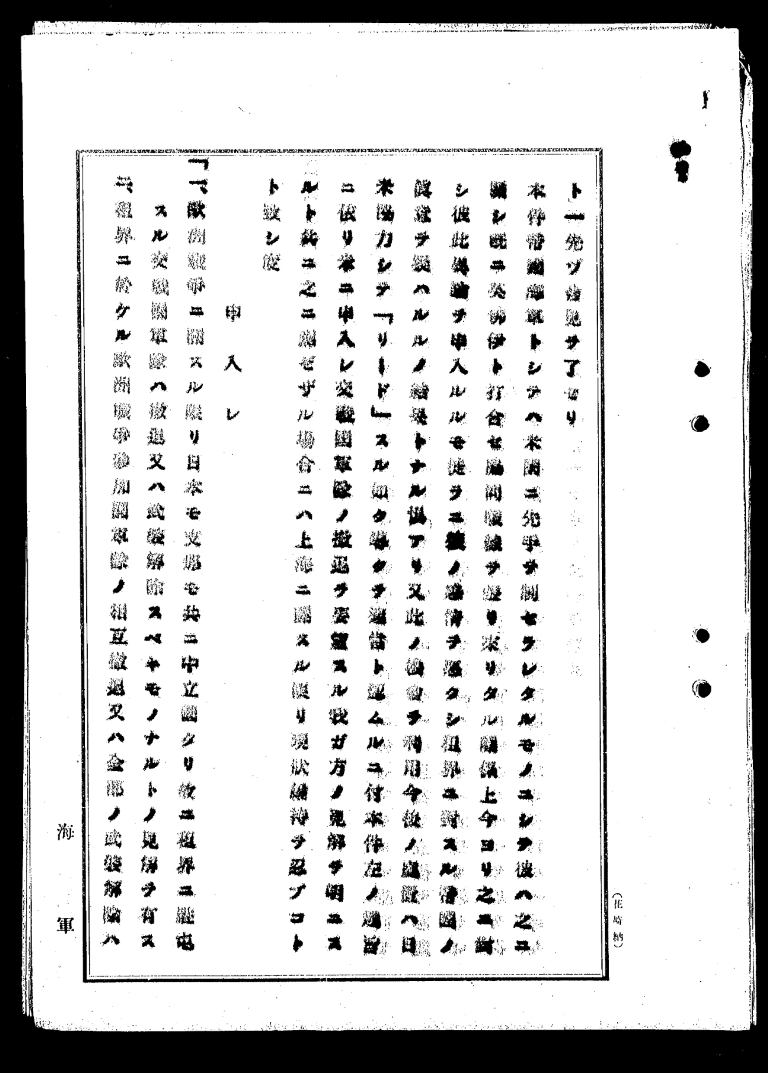 ト一先ヅ意見ヲ了セリ
本件帝国海軍トシテハ米国ニ先手ヲ制セラレタルモノニシテ彼ハ之ニ
関シ既ニ英佛伊ト打合セ協同戦線ヲ張リ来リタル関係上今ヨリ之ニ対
シ彼此異論ヲ申入ルルモ徒ラニ彼ノ感情ヲ悪クシ租界ニ対スル帝国ノ
真意ヲ疑ハルルノ結果トナル惧アリ又此ノ機会ヲ利用今後ノ処置ハ日
米協力シテ「リード」スル如ク導クヲ適当ト認ムルニ付本件左ノ趣旨
ニ依リ米ニ申入レ交戦国軍隊ノ撤退ヲ要望スル我ガ方ノ見解ヲ明ニス
ルト共ニ之ニ応ゼザル場合ニハ上海ニ関スル限リ現状維持ヲ忍ブコト
ト致シ度
申入レ
「一、欧洲戦争ニ関スル限リ日本モ支那モ共ニ中立国タリ故ニ租界ニ駐屯
スル交戦国軍隊ハ撤退又ハ武装解除スベキモノナルトノ見解ヲ有ス
二、租界ニ於ケル欧洲戦争参加国軍隊ノ相互撤退又ハ全部ノ武装解除ハ
海軍